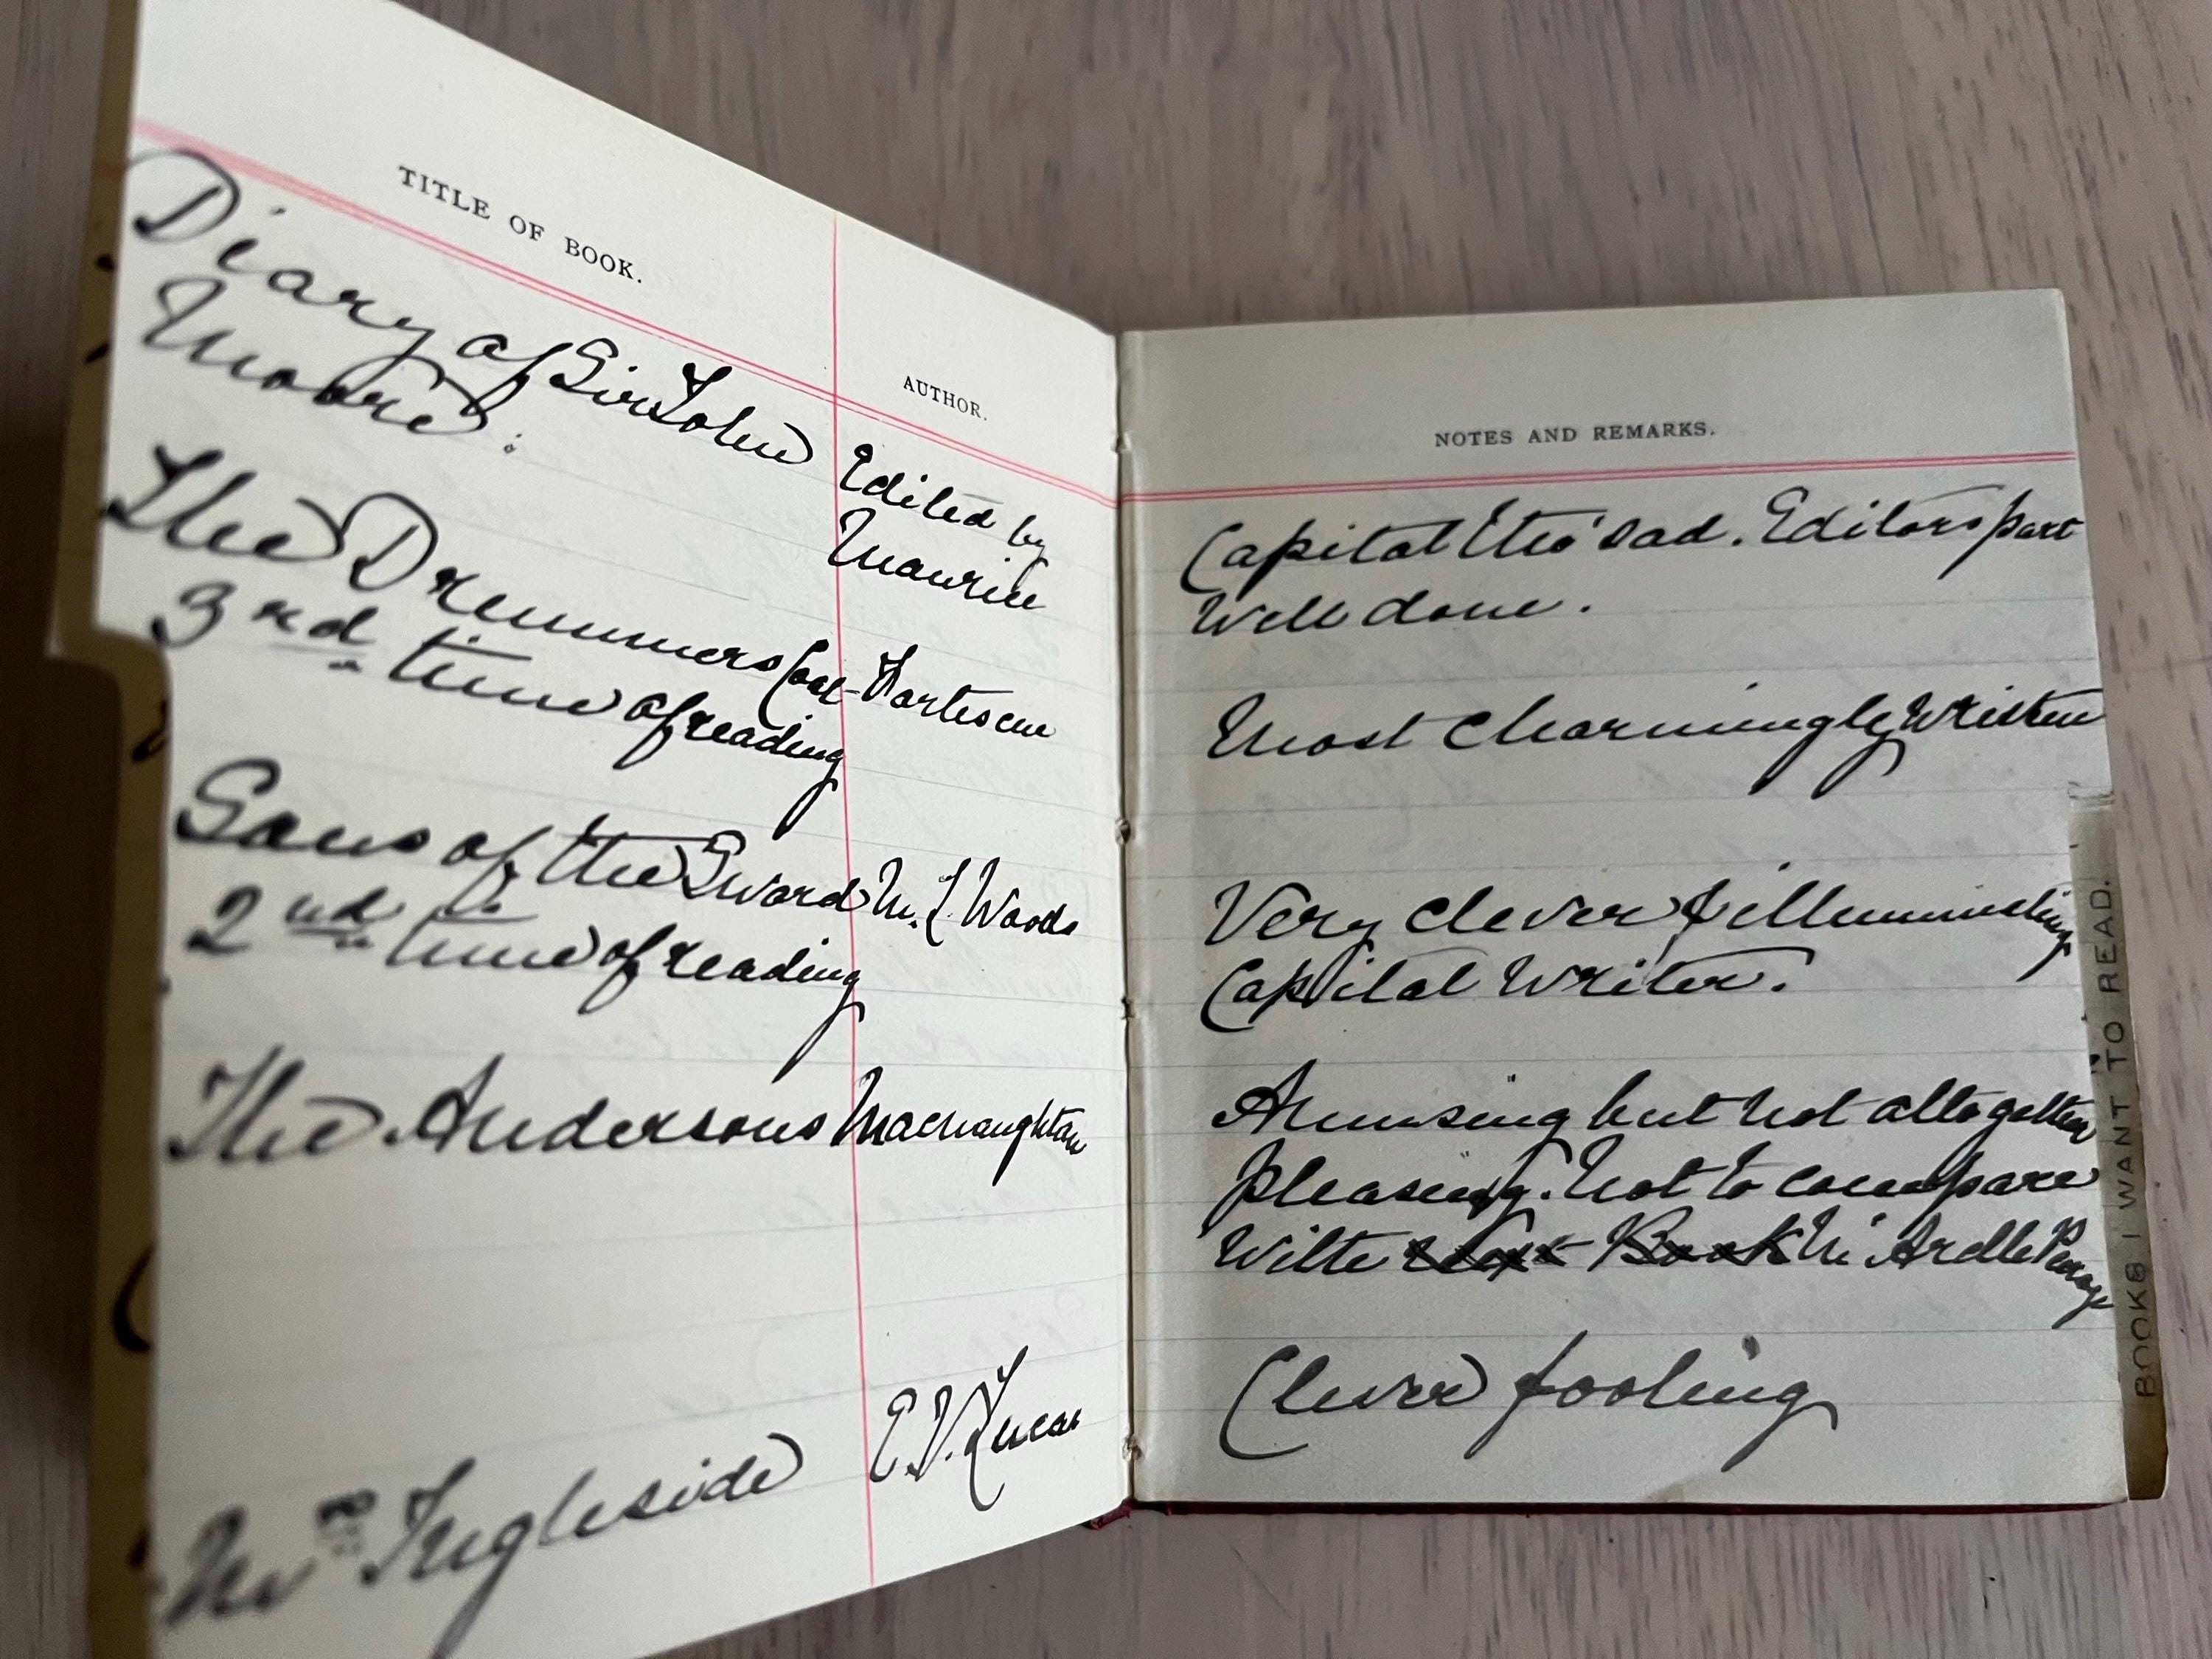 TITLE OF BOOK.
AUTHOR.
Diary of Sir John
Moore:
Edited by
Maurice
The Drummers Coat Fortescue
3rd time of reading
Sons of the Sword M. L. Woods
2nd time of reading
The Andersons Macnaughtan
Mrs Ingleside E. V. Lucas
NOTES AND REMARKS.
Capital tho' sad. Editors part
Well done.
Most charmingly written
Very clever & illuminating
Capital writer.
Amusing but not altogether
pleasing. not to compare
with Book M. Ardle Peerage
Clever fooling
BOOKS I WANT TO READ.